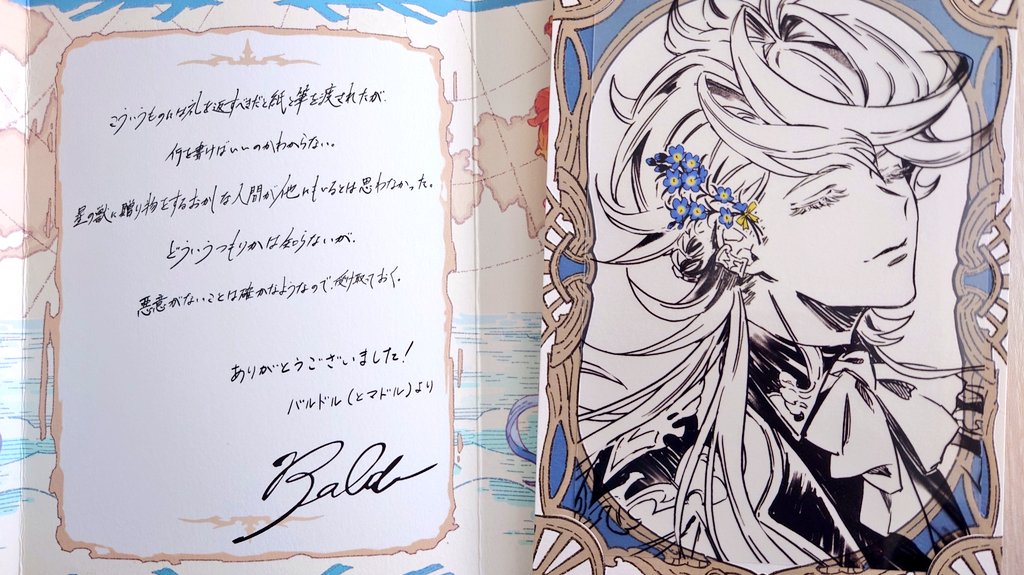 こういうものには礼を返すべきだと紙と筆を渡されたが、
何を書けばいいのかわからない。
星の獣に贈り物をするおかしな人間が他にもいるとは思わなかった。
どういうつもりかは知らないが、
悪意がないことは確かなようなので、受け取っておく。
ありがとうございました!
バルドル(とマドル)より